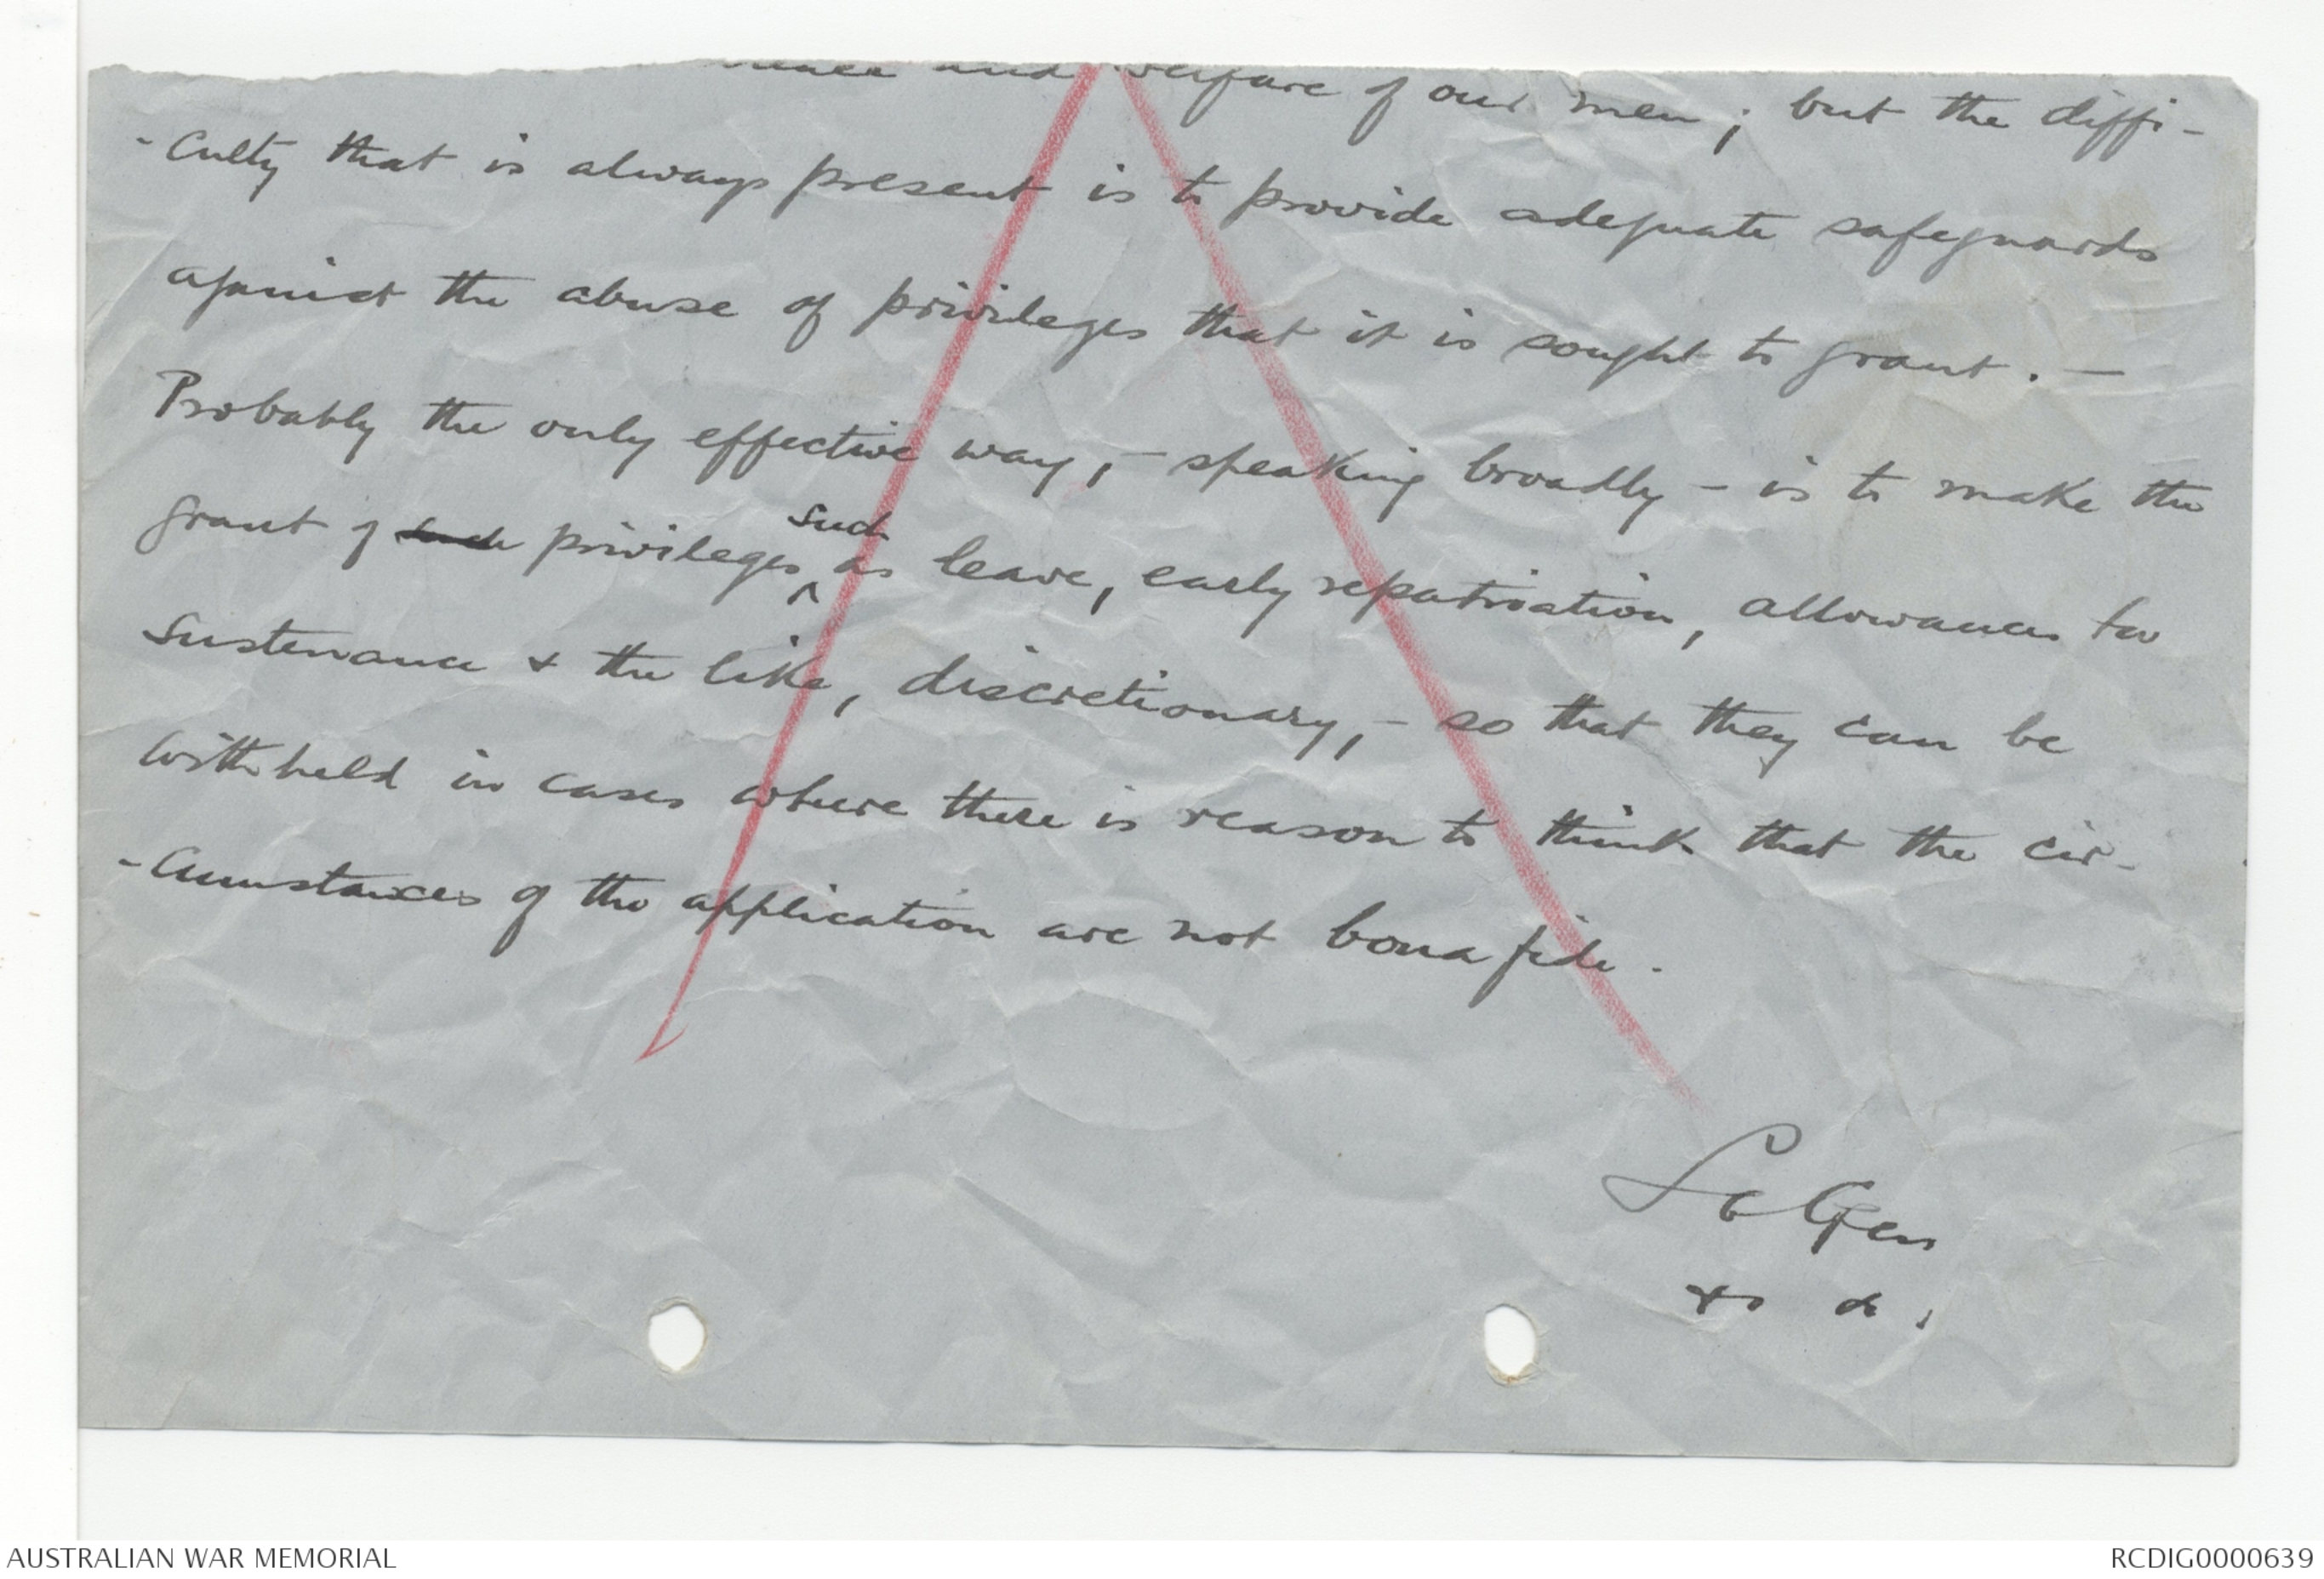 and welfare of our men; but the diffi-
-culty that is always present is to provide adequate safeguards
against the abuse of privileges that it is sought to grant. —
Probably the only effective way, – speaking broadly – is to make the
grant of such privileges such as leave, early repatriation, allowances for
sustenance & the like, discretionary, – so that they can be
withheld in cases where there is reason to think that the cir-
-cumstances of the application are not bona fide.
Lt Gen
AUSTRALIAN WAR MEMORIAL
RCDIG0000639